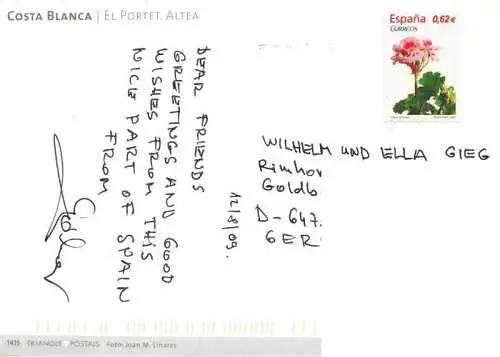 COSTA BLANCA | EL PORTET. ALTEA
España 0,62€
CORREOS
12/8/09.
DEAR FRIENDS
GREETINGS AND GOOD
WISHES FROM THIS
NICE PART OF SPAIN
FROM
WILHELM UND ELLA GIEG
Rimhor
Goldb
D-647.
GER.
1415 TRIANGLE POSTALS Foto: Joan M. Linares